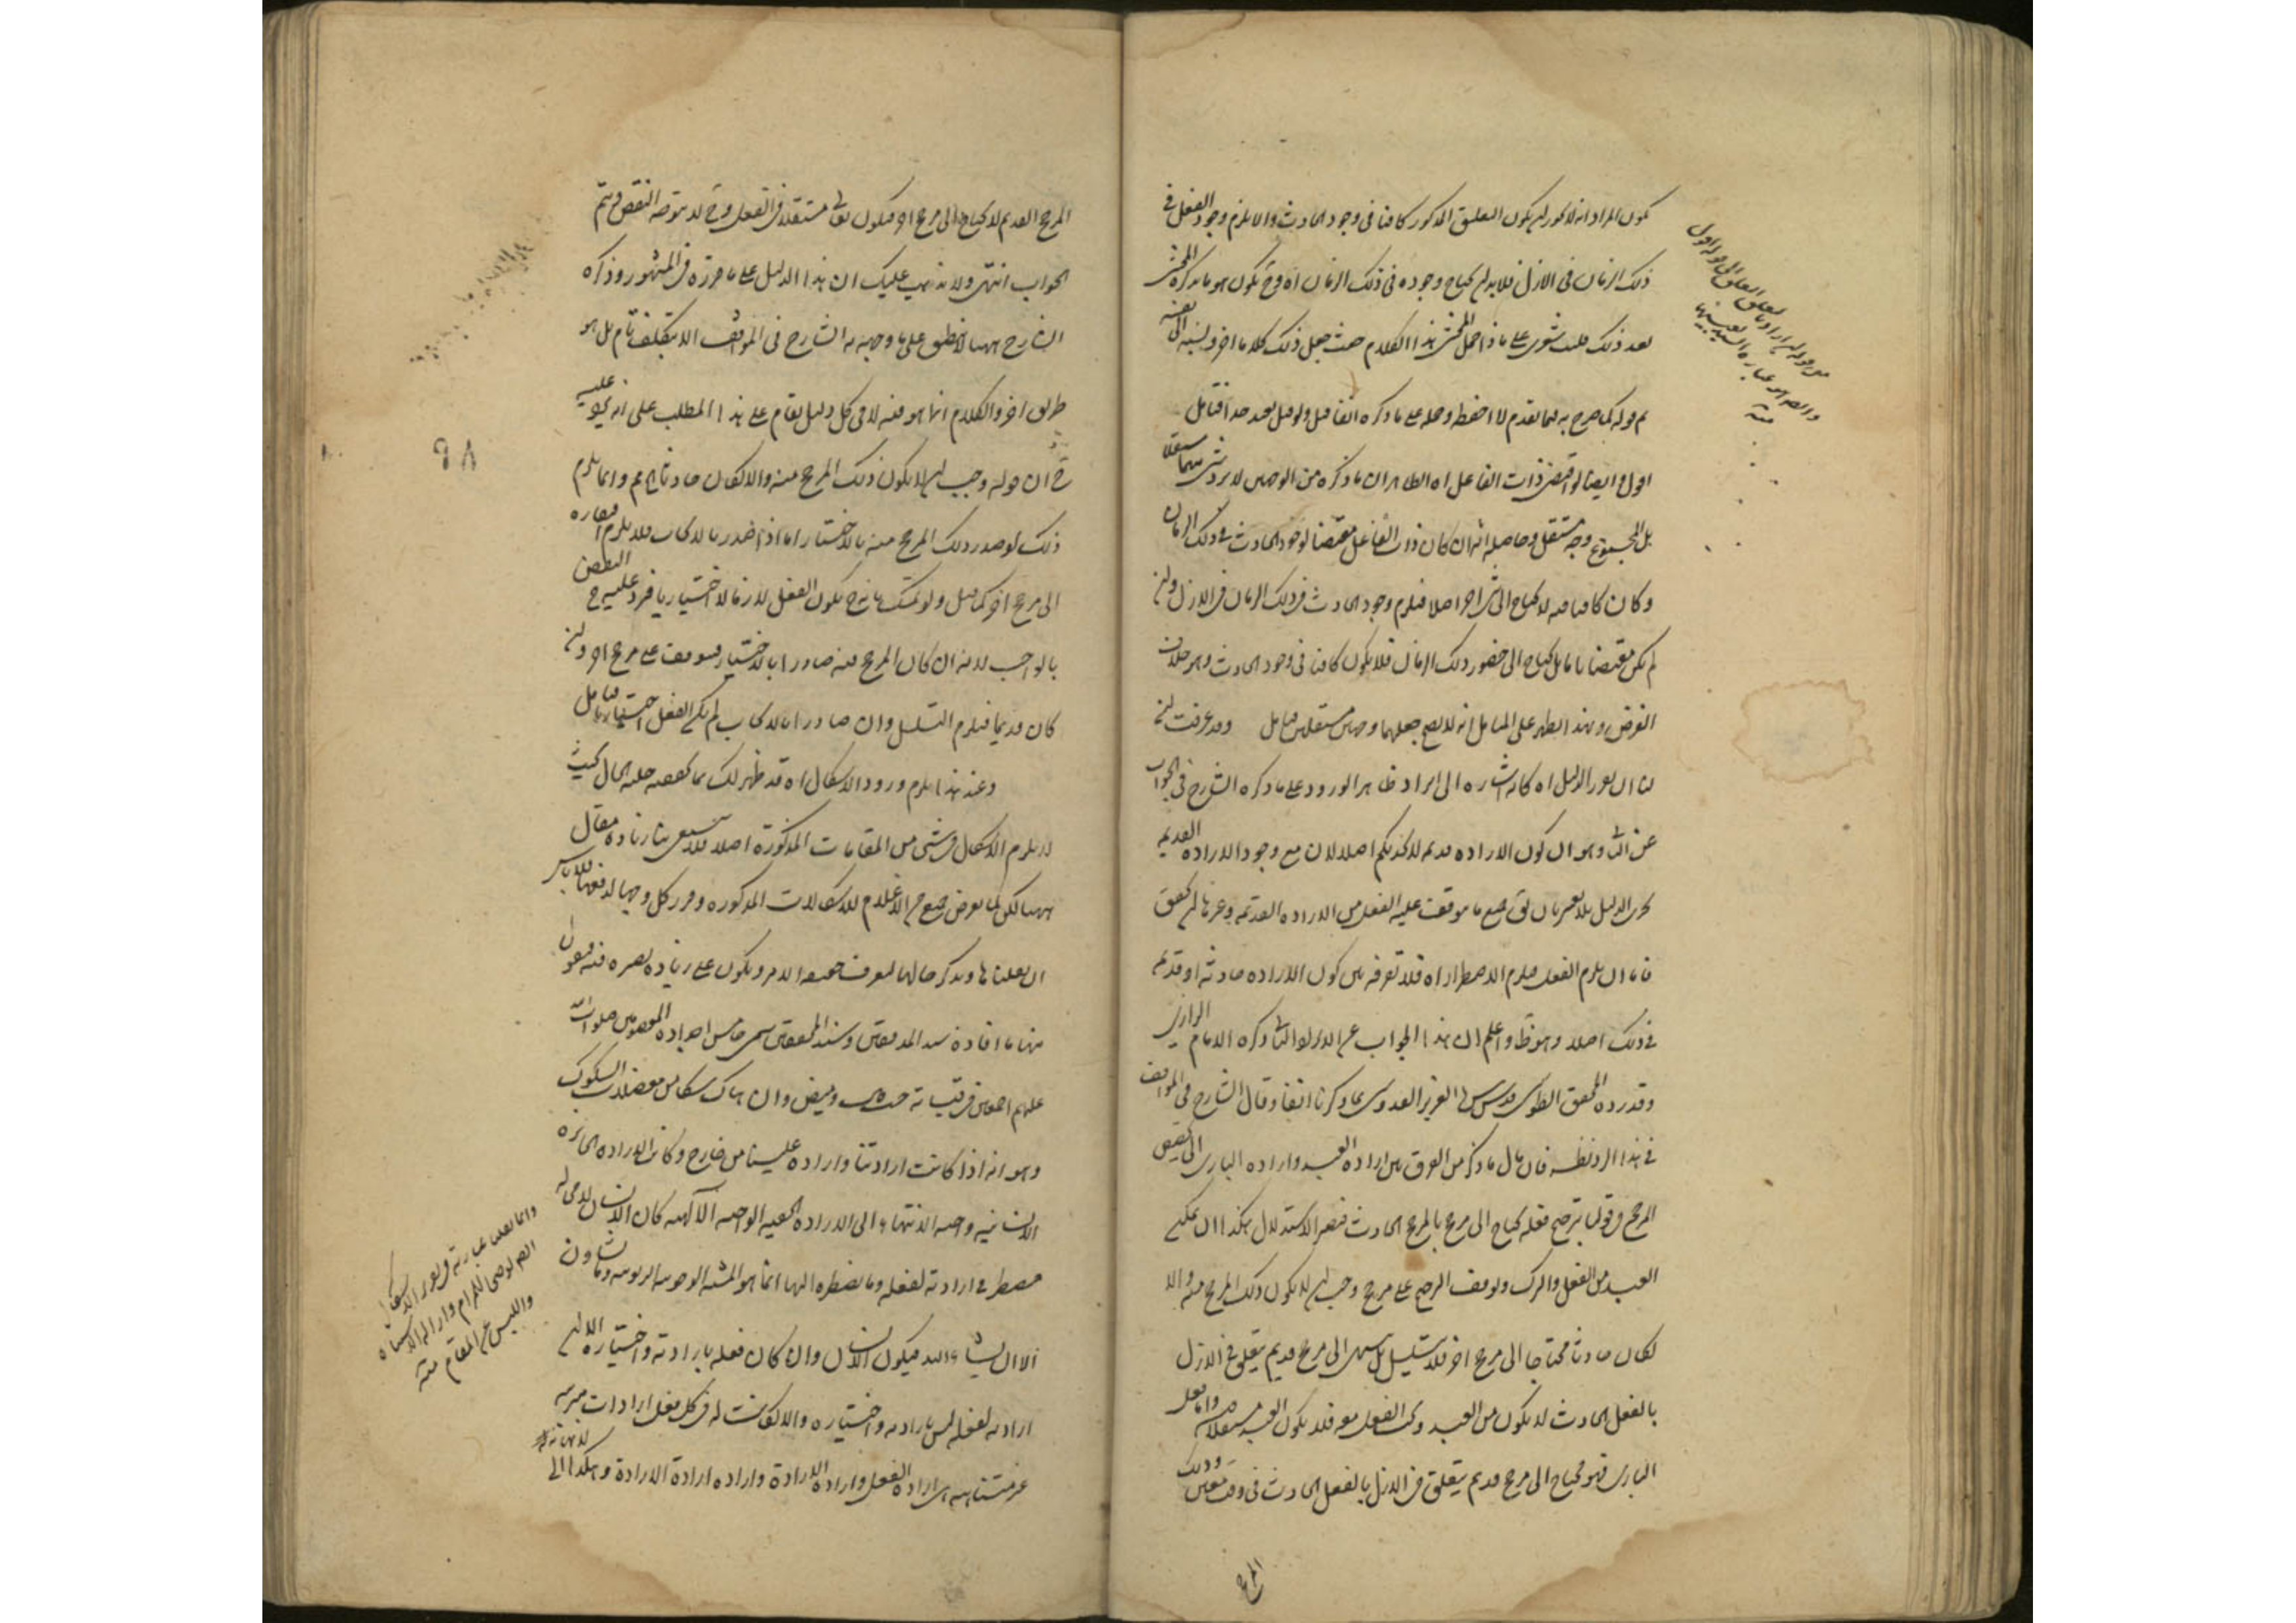 يكون المراد انه لا يجوز ان يكون التعلق المذكور كافيا فى وجود الحادث والا يلزم وجود الفعل فى
ذلك الزمان فى الازل فلا بد ان يحتاج وجوده فى ذلك الزمان اه وح يكون هو ما يذكره المحشى
بعد ذلك فليت شعرى على ماذا حمل المحشى هذا الكلام حيث جعل ذلك كلاما اخر ونسبه الى نفسه
ثم قوله كما صرح به فيما تقدم لا احفظه وحمله على ما ذكره انفا قبل ولو قبل بعيد جدا فتامل
اقول وايضا لو اقتضى ذات الفاعل اه الظاهر ان ما ذكره من الوجهين لا يرد شئ منهما مستقلا
بل المجموع وجه مستقل وحاصله انه ان كان ذات الفاعل مقتضيا لوجود الحادث فى ذلك الزمان
وكان كافيا فيه لا يحتاج الى شئ اخر اصلا فيلزم وجود الحادث فى ذلك الزمان فى الازل وان
لم يكن مقتضيا تاما بل يحتاج الى حضور ذلك الزمان فلا يكون كافيا فى وجود الحادث وهو خلاف
الفرض وبهذا يظهر على المتامل انه لا يصح جعلهما وجهين مستقلين فتامل وقد عرفت ان
لنا ان نعود الدليل اه كانه اشارة الى ايراد ظاهر الورود على ما ذكره الشارح فى الجواب
عن الثانى وهو ان كون الارادة قديمة لا يجديكم اصلا لان مع وجود الارادة القديمة
يجرى الدليل بلا تغير بان يق جميع ما يتوقف عليه الفعل من الارادة القديمة وغيرها ان تحقق
فاما ان يلزم الفعل فيلزم الاضطرار اه فلا تفرقة بين كون الارادة حادثة او قديمة
فى ذلك اصلا وهو ظ واعلم ان هذا الجواب عن الايراد الثانى ذكره الامام الرازى
وقد رده المحقق الطوسى قدس سره العزيز القدوسى بما ذكرنا انفا وقال الشارح فى المواقف
فى هذا الرد نظر فان مآل ما ذكر من الفرق بين ارادة العبد وارادة البارى الى تخصيص
المرجح فى قولنا ترجيح فعله يحتاج الى مرجح بالمرجح الحادث فيصير الاستدلال هكذا ان تمكن
العبد من الفعل والترك وتوقف الترجيح على مرجح وجب ان لا يكون ذلك المرجح منه والا
لكان حادثا محتاجا الى مرجح اخر فلا يتسلسل بل ينتهى الى مرجح قديم يتعلق فى الازل
بالفعل الحادث لا يكون من العبد ويجب الفعل معه فلا يكون العبد مستقلا فيه واما فعل
البارى فهو محتاج الى مرجح قديم يتعلق فى الازل بالفعل الحادث فى وقت معين وذلك
المرجح
منه
المرجح القديم لا يحتاج الى مرجح اخر فيكون تعالى مستقلا فى الفعل وح لا يتوجه النقض ويتم
الجواب انتهى ولا يذهب عليك ان هذا الدليل على ما قرره فى المشهور وذكره
الشارح ههنا لا ينطبق على ما وجهه به الشارح فى المواقف الا بتكلف تام بل هو
طريق اخر والكلام انما هو فيه لا فى كل دليل يقام على هذا المطلب على انه يرد عليه
ح ان قوله وجب ان لا يكون ذلك المرجح منه والا لكان حادثا مم وانما يلزم
ذلك لو صدر ذلك المرجح منه بالاختيار اما اذا صدر بالايجاب فلا يلزم افتقاره
الى مرجح اخر كما قيل ولو تمسك بانه ح يكون الفعل لازما لا اختياريا فيرد عليه ح النقض
بالواجب لانه ان كان المرجح فيه صادرا بالاختيار فيتوقف على مرجح اخر وان
كان قديما فيلزم التسلسل وان صادرا بالايجاب لم يكن الفعل اختياريا فتامل
وعند هذا يلزم ورود الاشكال اه قد ظهر لك مما حققه جلية الحال بحيث
لا يلزم الاشكال فى شئ من المقامات المذكورة اصلا فلا يسعى بنا زيادة مقال
ههنا لكن لما تعرض جمع من الاعلام للاشكالات المذكورة وقرر كل وجها لدفعها فلا باس
ان نقلناها ونذكر حالها لتعرف حقيقة الامر ويكون على زيادة بصيرة فيه فنقول
منها ما افاده سيد المدققين وسند المحققين سمى خامس اجداده المعصومين صلوات الله
عليهم اجمعين فى قبساته حيث ومض وان هناك شكا من معضلات الشكوك
وهو انه اذا كانت ارادتنا واردة علينا من خارج وكانت الارادة الجائزة
الانسانية واجبة الانتهاء الى الارادة الحقة الواجبة الالهية كان الانسان لا محالة
مضطرا فى ارادته لفعله وما يضطره اليها انما هو المشية الوجوبية الربوبية وما تشاؤن
الا ان يشاء الله فيكون الانسان وان كان فعله بارادته واختياره الا ان
ارادته لفعله ليس بارادته واختياره والا لكانت له فى كل فعل ارادات مترتبة
غير متناهية هى ارادة الفعل وارادة الارادة وارادة ارادة الارادة وهكذا الى لا نهاية
منه